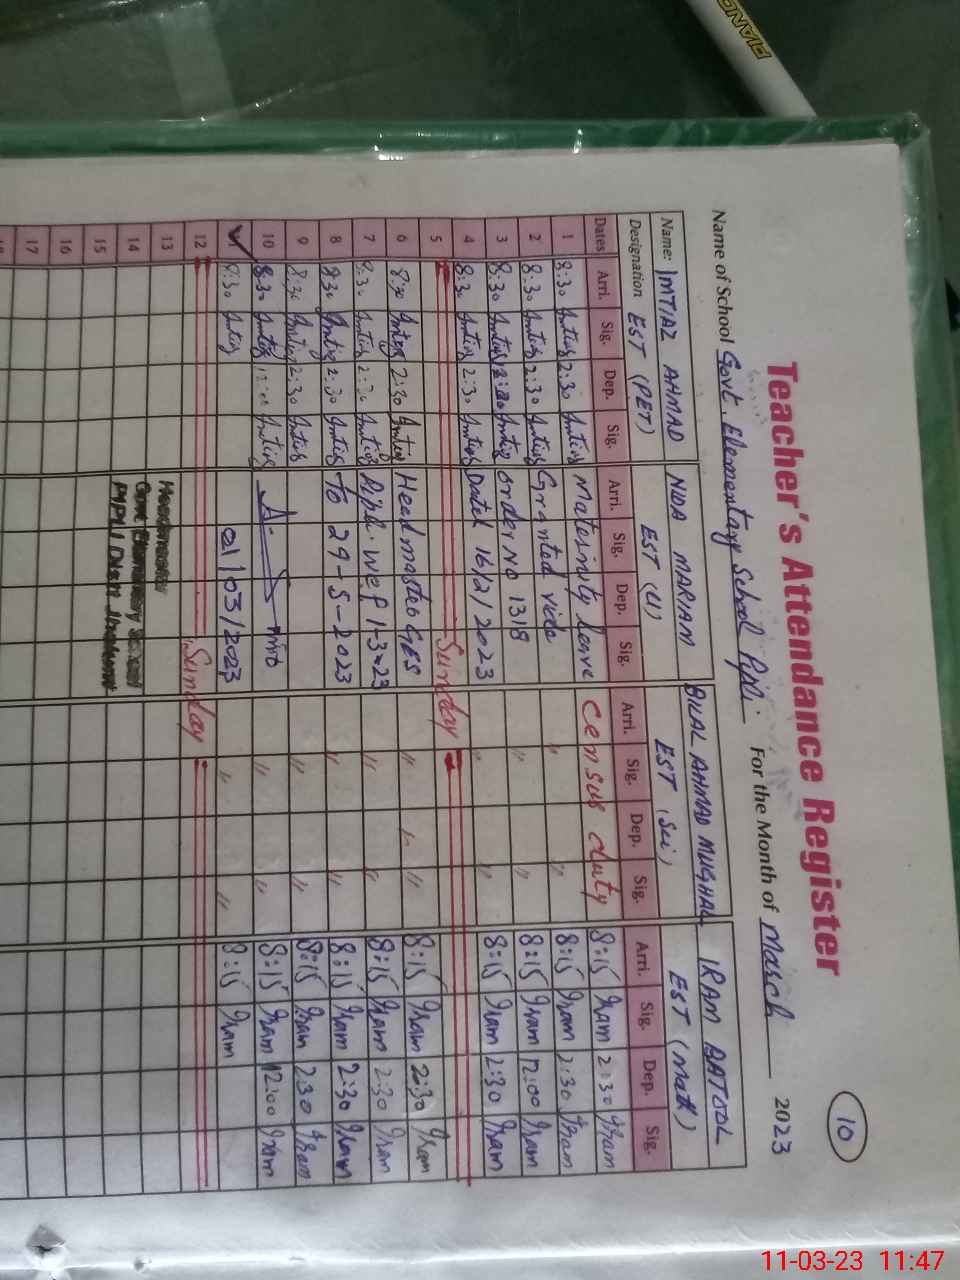 PIANO
10
Teacher's Attendance Register
Name of School Govt. Elementary School Pipli. For the Month of March 2023
Name: IMTIAZ AHMAD NIDA MARIAM BILAL AHMAD MUGHAL IRAM BATOOL
Designation EST (PET) EST (U) EST (Sci) EST (Math)
Dates Arri. Sig. Dep. Sig. Arri. Sig. Dep. Sig. Arri. Sig. Dep. Sig. Arri. Sig. Dep. Sig.
1 8:30 Imtiaz 2:30 Imtiaz Maternity leave census duty 8:15 Iram 2:30 Iram
2 8:30 Imtiaz 2:30 Imtiaz Granted vide " " 8:15 Iram 2:30 Iram
3 8:30 Imtiaz Imtiaz order No 1318 " " 8:15 Iram 12:00 Iram
4 8:30 Imtiaz 2:30 Imtiaz Dated 16/2/2023 " " 8:15 Iram 2:30 Iram
5 Sunday
6 8:30 Imtiaz 2:30 Imtiaz Headmaster GES " " " 8:15 Iram 2:30 Iram
7 8:30 Imtiaz 2:30 Imtiaz Pipli. wef 1-3-23 " " 8:15 Iram 2:30 Iram
8 8:30 Imtiaz 2:30 Imtiaz To 29-5-2023 " " 8:15 Iram 2:30 Iram
9 8:30 Imtiaz 2:30 Imtiaz " " 8:15 Iram 2:30 Iram
10 8:30 Imtiaz Imtiaz " " 8:15 Iram 12:00 Iram
8:30 Imtiaz 01/03/2023 " " 8:15 Iram
12 Sunday
13 Headmaster
14 Govt Elementary School
15 PIPLI Distt Jhelum
16
17
18
11-03-23 11:47